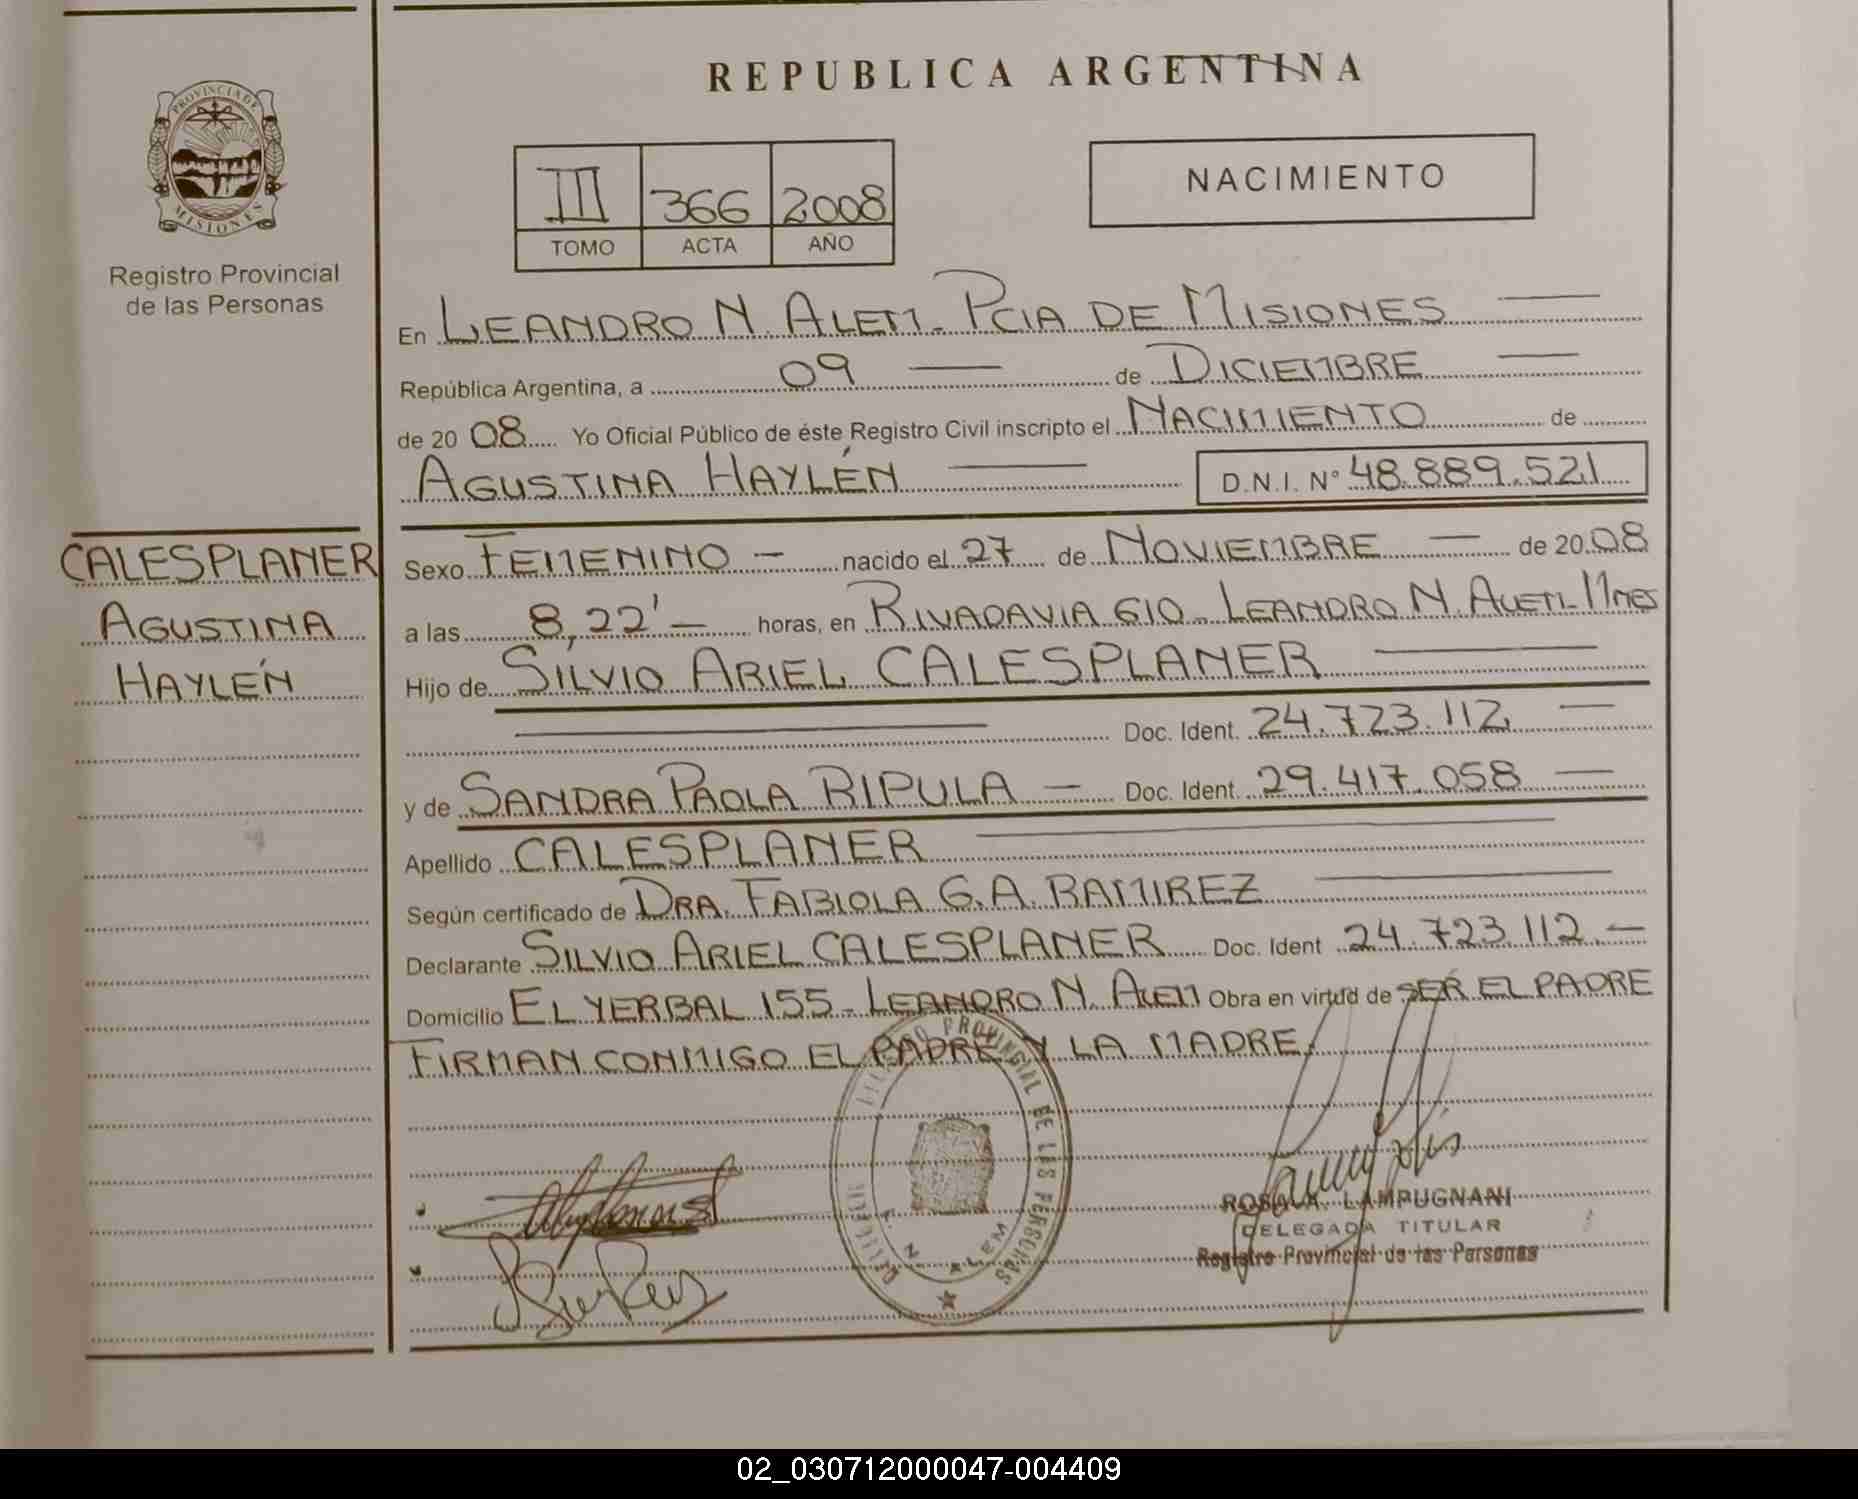 REPUBLICA ARGENTINA
PROVINCIA DE MISIONES
Registro Provincial
de las Personas
III 366 2008
TOMO ACTA AÑO
NACIMIENTO
En LEANDRO N. ALEM. PCIA DE MISIONES
República Argentina, a 09 de DICIEMBRE
de 2008 Yo Oficial Público de éste Registro Civil inscripto el NACIMIENTO de
AGUSTINA HAYLÉN D.N.I. N° 48.889.521
CALESPLANER
AGUSTINA
HAYLÉN
Sexo FEMENINO - nacido el 27 de NOVIEMBRE de 2008
a las 8,22' horas, en RIVADAVIA 610 - LEANDRO N. ALEM - Mnes
Hijo de SILVIO ARIEL CALESPLANER
Doc. Ident. 24.723.112
y de SANDRA PAOLA RIPULA - Doc. Ident. 29.417.058
Apellido CALESPLANER
Según certificado de DRA. FABIOLA G.A. RAMIREZ
Declarante SILVIO ARIEL CALESPLANER Doc. Ident 24.723.112.-
Domicilio EL YERBAL 155 - LEANDRO N. ALEM Obra en virtud de SER EL PADRE
FIRMAN CONMIGO EL PADRE Y LA MADRE.
PROVINCIAL DE LAS PERSONAS
N. ALEM
ROSA A. LAMPUGNANI
DELEGADA TITULAR
Registro Provincial de las Personas
02_030712000047-004409